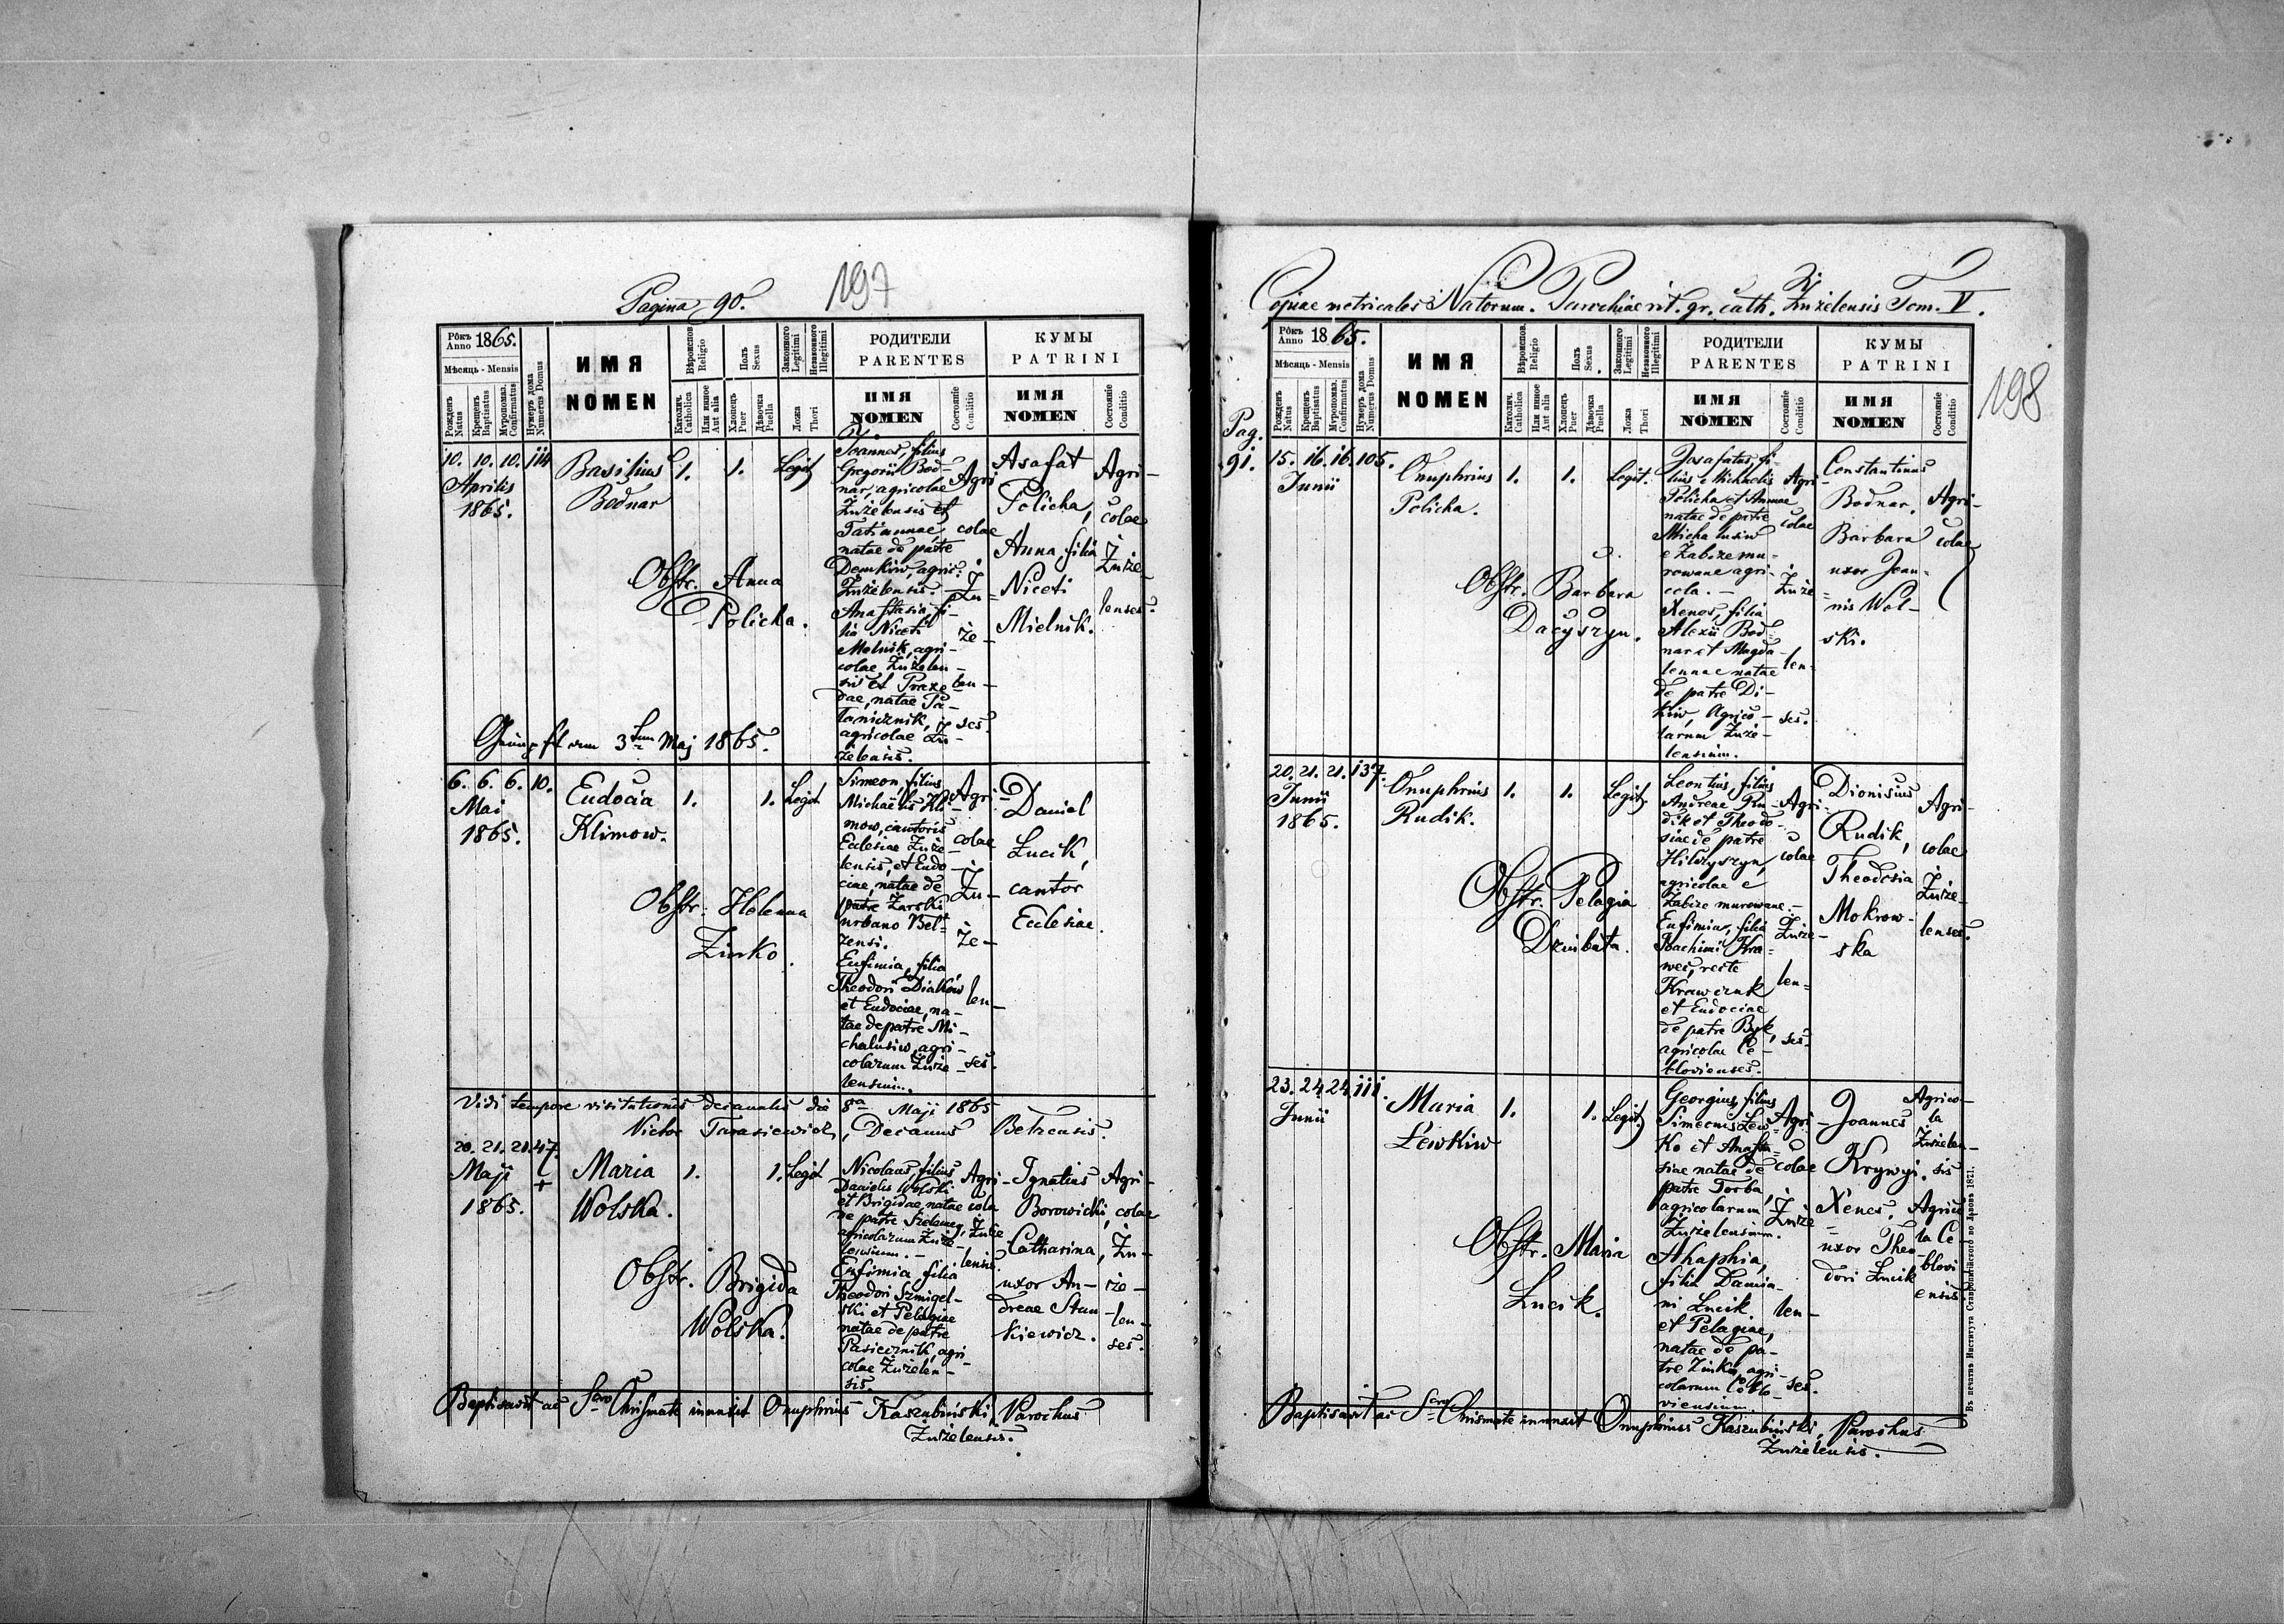 Pagina 90.
197
Рôкъ Anno 1865.
Мѣсяць - Mensis
Рожденъ Natus
Крещенъ Baptisatus
Мѵропомаз. Confirmatus
Нумеръ дома Numerus Domus
ИМЯ
NOMEN
Вѣроиспов. Religio
Католич. Catholica
Или иное Aut alia
Полъ Sexus
Хлопецъ Puer
Дѣвочка Puella
Законного Legitimi
Незаконного Illegitimi
Ложа Thori
РОДИТЕЛИ
PARENTES
ИМЯ
NOMEN
Состояніе Conditio
КУМЫ
PATRINI
ИМЯ
NOMEN
Состояніе Conditio
10. 10. 10. 114
Aprilis
1865.
Basilius
Bodnar
1. 1. Legit
Obstr. Anna
Policha.
Joannes, filius
Gregorii Bod-
nar, agricolae
Żużelensis et
Tatiannae,
natae de patre
Demkiw, agric.
Żużelensis. -
Anastasia, fi-
lia Niceti
Melnik, agri-
colae Żużelen-
sis et Praxe
dae, natae Pa-
lamicznik,
agricolae Żu-
żelensis.
Agri
colae
Żu-
że-
len-
ses.
Asafat
Policha,
Anna, filia
Niceti
Mielnik.
Agri-
colae
Żuże-
lenses.
Geimpft am 3ten Maj 1865.
6. 6. 6. 10.
Mai
1865.
Eudocia
Klimow.
1. 1. Legit
Obstr. Helenna
Zinko.
Simeon, filius
Michaelis Kli-
mow, cantoris
Ecclesiae Żuże-
lensis, et Eudo-
ciae, natae de
patre Żarski
urbano Bel-
zensi.
Eufimia, filia
Theodori Diakow
et Eudociae, na-
tae de patre Mi-
chalusiw, agri-
colarum Żuże-
lensium.
Agri-
colae
Żu-
że-
len-
ses.
Daniel
Lucik,
cantor
Ecclesiae.
Vidi tempore visitationis decanalis die 8va Maji 1865
Victor Tarasiewicz, Decanus Belzensis.
20. 21. 21. 47.
Maji
1865.
Maria
Wolska.
1. 1. Legit
Obstr. Brigida
Wolska.
Nicolaus, filius
Danielis Wolski
et Brigidae, natae
de patre
agricolarum Żuże-
lensium. -
Eufimia, filia
Theodori Szmigel-
ski et Pelagiae
natae de patre
Pasiecznik, agri-
colae Żużelen-
sis.
Agri-
cola
Żuże
lensis.
Ignatius
Borowicki,
Catharina,
uxor An-
dreae Stan-
kiewicz.
Agri-
colae
Żu-
że-
len-
ses.
Baptisavit ac Scro Chrismate inunxit Onuphrius Kaszubiński, Parochus
Żużelensis.
Copiae metricales Natorum. Parochiae rit. gr. cath. Żużelensis Tom. V.
198
Рôкъ Anno 1865.
Мѣсяць - Mensis
Рожденъ Natus
Крещенъ Baptisatus
Мѵропомаз. Confirmatus
Нумеръ дома Numerus Domus
ИМЯ
NOMEN
Вѣроиспов. Religio
Католич. Catholica
Или иное Aut alia
Полъ Sexus
Хлопецъ Puer
Дѣвочка Puella
Законного Legitimi
Незаконного Illegitimi
Ложа Thori
РОДИТЕЛИ
PARENTES
ИМЯ
NOMEN
Состояніе Conditio
КУМЫ
PATRINI
ИМЯ
NOMEN
Состояніе Conditio
Pag.
91.
15. 16. 16. 105.
Junii
Onuphrius
Policha.
1. 1. Legit.
Obstr. Barbara
Dacyszyn.
Josafatus, fi-
lius Michaelis
Policha et Annae
natae de patre
Michalusiw
e Zabcze mu-
rowane agri-
cola. -
Xenos, filia
Alexii Bod-
nar et Magda-
lennae natae
de patre Di-
kiw, Agrico-
larum Żuże-
lensium.
Agri-
colae
Żuże
len-
ses.
Constantinus
Bodnar,
Barbara
uxor Joan-
nis Wol-
ski.
Agri-
colae
20. 21. 21. 137.
Junii
1865.
Onuphrius
Rudik.
1. 1. Legit.
Obstr. Pelagia
Dziubata.
Leontius, filius
Andreae Ru-
dik et Theodo-
siae de patre
Hilczyszyn,
agricolae e
Zabcze murowane. -
Eufimia, filia
Joachimi Kra-
wec, recte
Krawczuk
et Eudociae
de patre Byk,
agricolae Ce-
blovienses.
Agri-
colae
Żuże-
len-
ses.
Dionisius
Rudik,
Theodosia
Mokrow-
ska
Agri-
colae
Żuże-
lenses.
23. 24. 24. 111.
Junii
Maria
Lewkiw
1. 1. Legit.
Obstr. Maria
Lucik.
Georgius, filius
Simeonis Lew-
ko et Anasta-
siae natae de
patre Torba,
agricolarum
Żużelensium.
Ahaphia,
filia Damia-
ni Lucik
et Pelagiae,
natae de pa-
tre Zinko, agri-
colarum Ceblo-
viensium.
Agri-
colae
Żuże
len-
ses.
Joannes
Krywyj.
Xenes,
uxor Theo-
dori Lucik
Agrico-
la
Żużelen-
sis
Agrico
la Ce
blovi
ensis.
Baptisavit ac Scro Chrismate inunxit Onuphrius Kaszubiński, Parochus
Żużelensis.
Въ печатнѣ Института Ставропигійского во Львовѣ 1871.